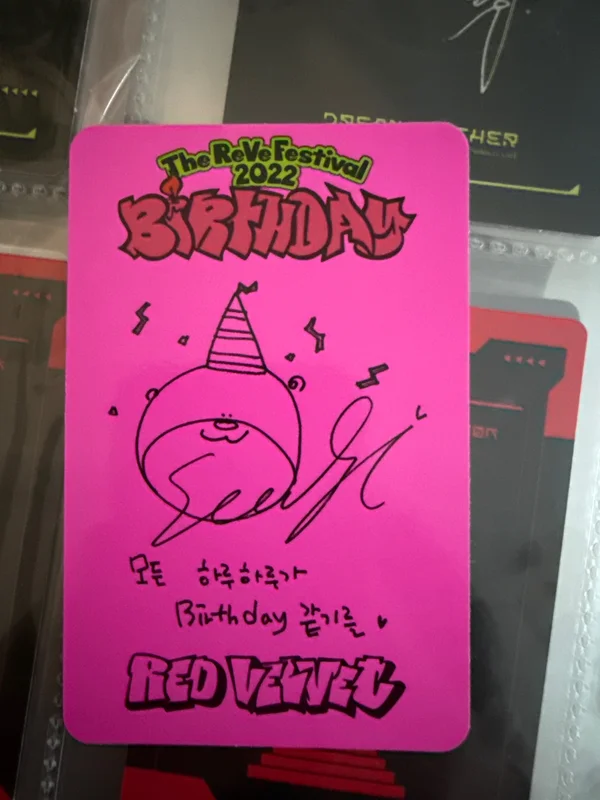 The ReVe Festival
2022
BiRTHDAY
Seulgi
모든 하루하루가
Birthday 같기를
RED VELVET